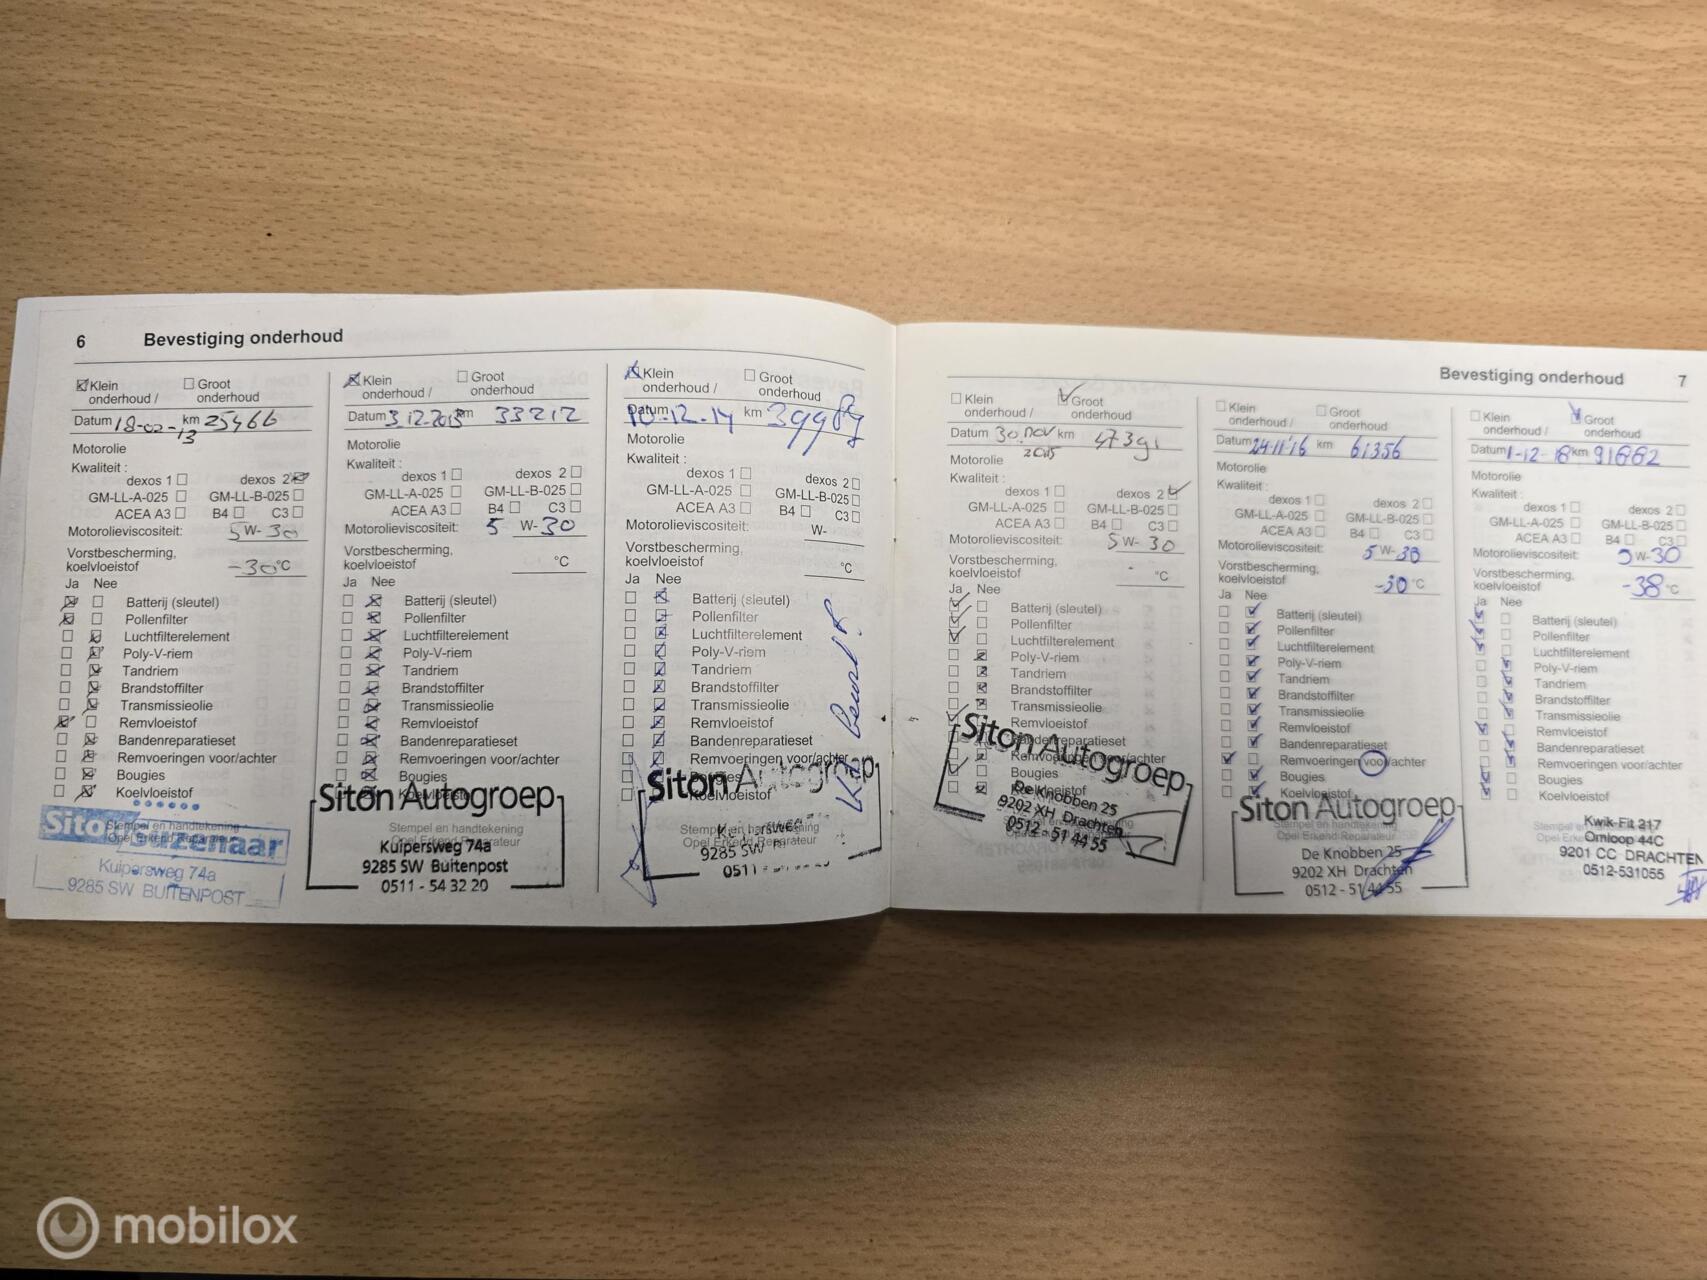 6 Bevestiging onderhoud
Klein onderhoud / Groot onderhoud
Datum 18-02-13 km 25466
Motorolie
Kwaliteit :
dexos 1 dexos 2
GM-LL-A-025 GM-LL-B-025
ACEA A3 B4 C3
Motorolieviscositeit: 5 W- 30
Vorstbescherming,
koelvloeistof -30 °C
Ja Nee
Batterij (sleutel)
Pollenfilter
Luchtfilterelement
Poly-V-riem
Tandriem
Brandstoffilter
Transmissieolie
Remvloeistof
Bandenreparatieset
Remvoeringen voor/achter
Bougies
Koelvloeistof
Stempel en handtekening
Opel Erkend Reparateur
Kuipersweg 74a
9285 SW BUITENPOST
Klein onderhoud / Groot onderhoud
Datum 3.12.2013 km 33212
Motorolie
Kwaliteit :
dexos 1 dexos 2
GM-LL-A-025 GM-LL-B-025
ACEA A3 B4 C3
Motorolieviscositeit: 5 W- 30
Vorstbescherming,
koelvloeistof °C
Ja Nee
Batterij (sleutel)
Pollenfilter
Luchtfilterelement
Poly-V-riem
Tandriem
Brandstoffilter
Transmissieolie
Remvloeistof
Bandenreparatieset
Remvoeringen voor/achter
Bougies
Koelvloeistof
Siton Autogroep
Stempel en handtekening
Opel Erkend Reparateur
Kuipersweg 74a
9285 SW Buitenpost
0511 - 54 32 20
Klein onderhoud / Groot onderhoud
Datum 10-12-14 km 39989
Motorolie
Kwaliteit :
dexos 1 dexos 2
GM-LL-A-025 GM-LL-B-025
ACEA A3 B4 C3
Motorolieviscositeit: W-
Vorstbescherming,
koelvloeistof °C
Ja Nee
Batterij (sleutel)
Pollenfilter
Luchtfilterelement
Poly-V-riem
Tandriem
Brandstoffilter
Transmissieolie
Remvloeistof
Bandenreparatieset
Remvoeringen voor/achter
Bougies
Koelvloeistof
Siton Autogroep
Stempel en handtekening
Opel Erkend Reparateur
9285 SW
0511
Bevestiging onderhoud 7
Klein onderhoud / Groot onderhoud
Datum 30 nov 2015 km 47391
Motorolie
Kwaliteit :
dexos 1 dexos 2
GM-LL-A-025 GM-LL-B-025
ACEA A3 B4 C3
Motorolieviscositeit: 5 W- 30
Vorstbescherming,
koelvloeistof °C
Ja Nee
Batterij (sleutel)
Pollenfilter
Luchtfilterelement
Poly-V-riem
Tandriem
Brandstoffilter
Transmissieolie
Remvloeistof
Bandenreparatieset
Remvoeringen voor/achter
Bougies
Koelvloeistof
Siton Autogroep
De Knobben 25
9202 XH Drachten
0512 - 51 44 55
Klein onderhoud / Groot onderhoud
Datum 24-11-'16 km 61356
Motorolie
Kwaliteit :
dexos 1 dexos 2
GM-LL-A-025 GM-LL-B-025
ACEA A3 B4 C3
Motorolieviscositeit: 5 W- 30
Vorstbescherming,
koelvloeistof -30 °C
Ja Nee
Batterij (sleutel)
Pollenfilter
Luchtfilterelement
Poly-V-riem
Tandriem
Brandstoffilter
Transmissieolie
Remvloeistof
Bandenreparatieset
Remvoeringen voor/achter
Bougies
Koelvloeistof
Siton Autogroep
Stempel en handtekening
Opel Erkend Reparateur
De Knobben 25
9202 XH Drachten
0512 - 51 44 55
Klein onderhoud / Groot onderhoud
Datum 1-12-18 km 91662
Motorolie
Kwaliteit :
dexos 1 dexos 2
GM-LL-A-025 GM-LL-B-025
ACEA A3 B4 C3
Motorolieviscositeit: 5 W-30
Vorstbescherming,
koelvloeistof -38 °C
Ja Nee
Batterij (sleutel)
Pollenfilter
Luchtfilterelement
Poly-V-riem
Tandriem
Brandstoffilter
Transmissieolie
Remvloeistof
Bandenreparatieset
Remvoeringen voor/achter
Bougies
Koelvloeistof
Kwik-Fit 217
Omloop 44C
9201 CC DRACHTEN
0512-531055
mobilox